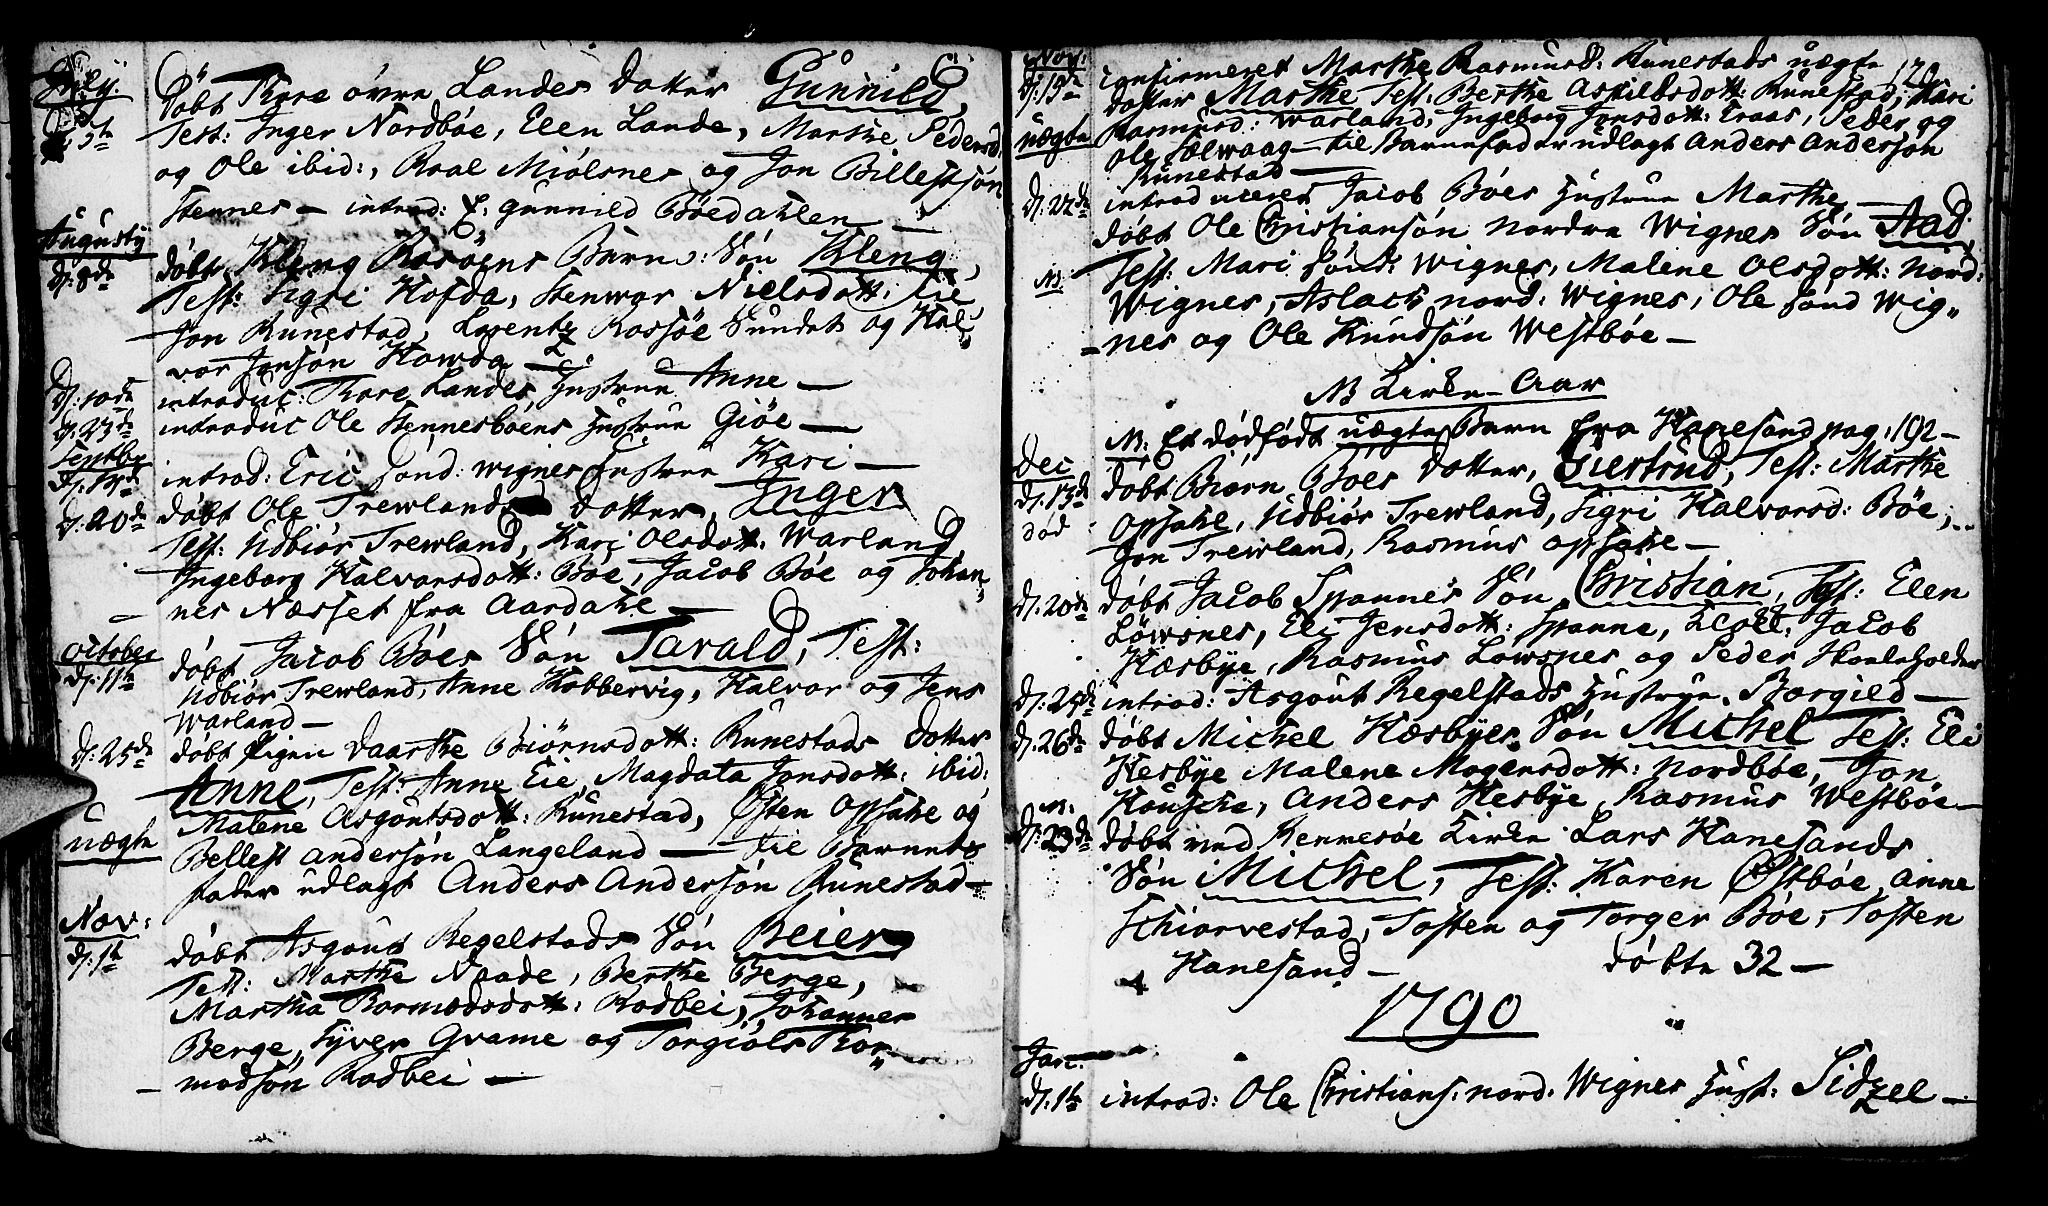 July.
d: 5te døbt Tore øvre Landes Datter Gunnild,
Test: Inger Nordbøe, Elen Lande, Marthe Pedersd
og Ole ibid:, Roal Miølsnes og Jon Billestsøn
Stennes — introd: E: Gunnild Bøedahlen —
Augusty
d: 9de døbt Kleng Rosøens Barn: Søn Kleng,
Test: Sigri Hofda, Stenwor Nielsdott: Eie
Jon Runestad, Lorentz Rossøe Sundet og Hal„
vor Jonsøn Howda —
d: 10de introduc: Tore Landes Hustrue Anne —
d: 23de introduc Ole Stennesbøens Hustrue Giøe —
Septbr
d: 13de introd: Eric sønd: Wignes Hustrue Kari —
d: 20de døbt Ole Trewlands Datter, Inger
Test: Udbiør Trewland, Kari Olsdott: Warland
Ingeborg Halvorsdott: Bøe, Jacob Bøe og Johan„
nes Næsset fra Aardahl —
October
d: 11te døbt Jacob Bøes Søn Tarald, Test:
Udbiør Trewland, Anne Hobbervig, Halvor og Jens
Warland —
d: 25de døbt Pigen Daarthe Biørnsdott: Runestads Dotter
Anne, Test: Anne Eie, Magdala Jonsdott: ibid:
Malene Asgoutsdott: Runestad, Østen Opsahl og
uægte Bellest Andersøn Langeland — til Barnets
fader udlagt Anders Andersøn Runestad —
Nov:
d: 1te døbt Asgout Regelstads Søn Beier
Test: Marthe Naade, Berthe Berge,
Martha Tormodsdott: Rodbei, Johannes
Berge, Syver Gvame og Torgiøls Tor„
modsøn Rodbei —
Nov: 129
d: 15de confirmeret Marthe Rasmusd: Runestads uægte
Dotter Marthe Test: Berthe Askildsdott: Runestad, Kari
uægte Rasmusd: Warland, Ingeborg Jonsdott: Eraas, Peder og
Ole Sælwaag — til Barnefader udlagt Anders Andersøn
Runestad —
d: 22de introduceret Jacob Bøes Hustrue Marthe —
døbt Ole Christiansøn Nordre Wignes Søn Aad
NB Test: Mari sønd: Wignes, Malene Olsdott: Nord:
Wignes, Aslach nord: Wignes, Ole sønd Wig„
nes og Ole Knudsøn Westbøe —
NB Kirke-Aar
NB: Et dødfødt uægte Barn fra Hanesand pag: 192 —
Dec
d: 13de døbt Biørn Bøes Dotter, Giertrud, Test: Marthe
død Opsahl, Udbiør Trewland, Sigri Halvorsd: Bøe,
Jon Trewland, Rasmus Opsahl —
d: 20de døbt Jacob Spannes Søn Christian, Test: Elen
Løwsnes, Eli Jensdott: Spanne, Jacob
Hæsbye, Rasmus Lowsnes og Peder Skoleholder
d: 25de introd: Asgout Regelstads Hustrue Borgild —
d: 26de døbt Michel Hæsbyes Søn Michel Test: Eli
Hesbye Malene Mogensdott: Nordbøe, Jon
n: Housche, Anders Hesbye, Rasmus Westbøe —
d: 23de døbt ved Rennesøe Kirke Lars Hanesands
Søn Michel, Test: Karen Østbøe, Anne
Schiorvestad, Tosten og Torger Bøe, Tosten
Hanesand — døbte 32 —
1790
Jan:
d: 1te introd: Ole Christians: nord: Wignes Hust: Sidzel —